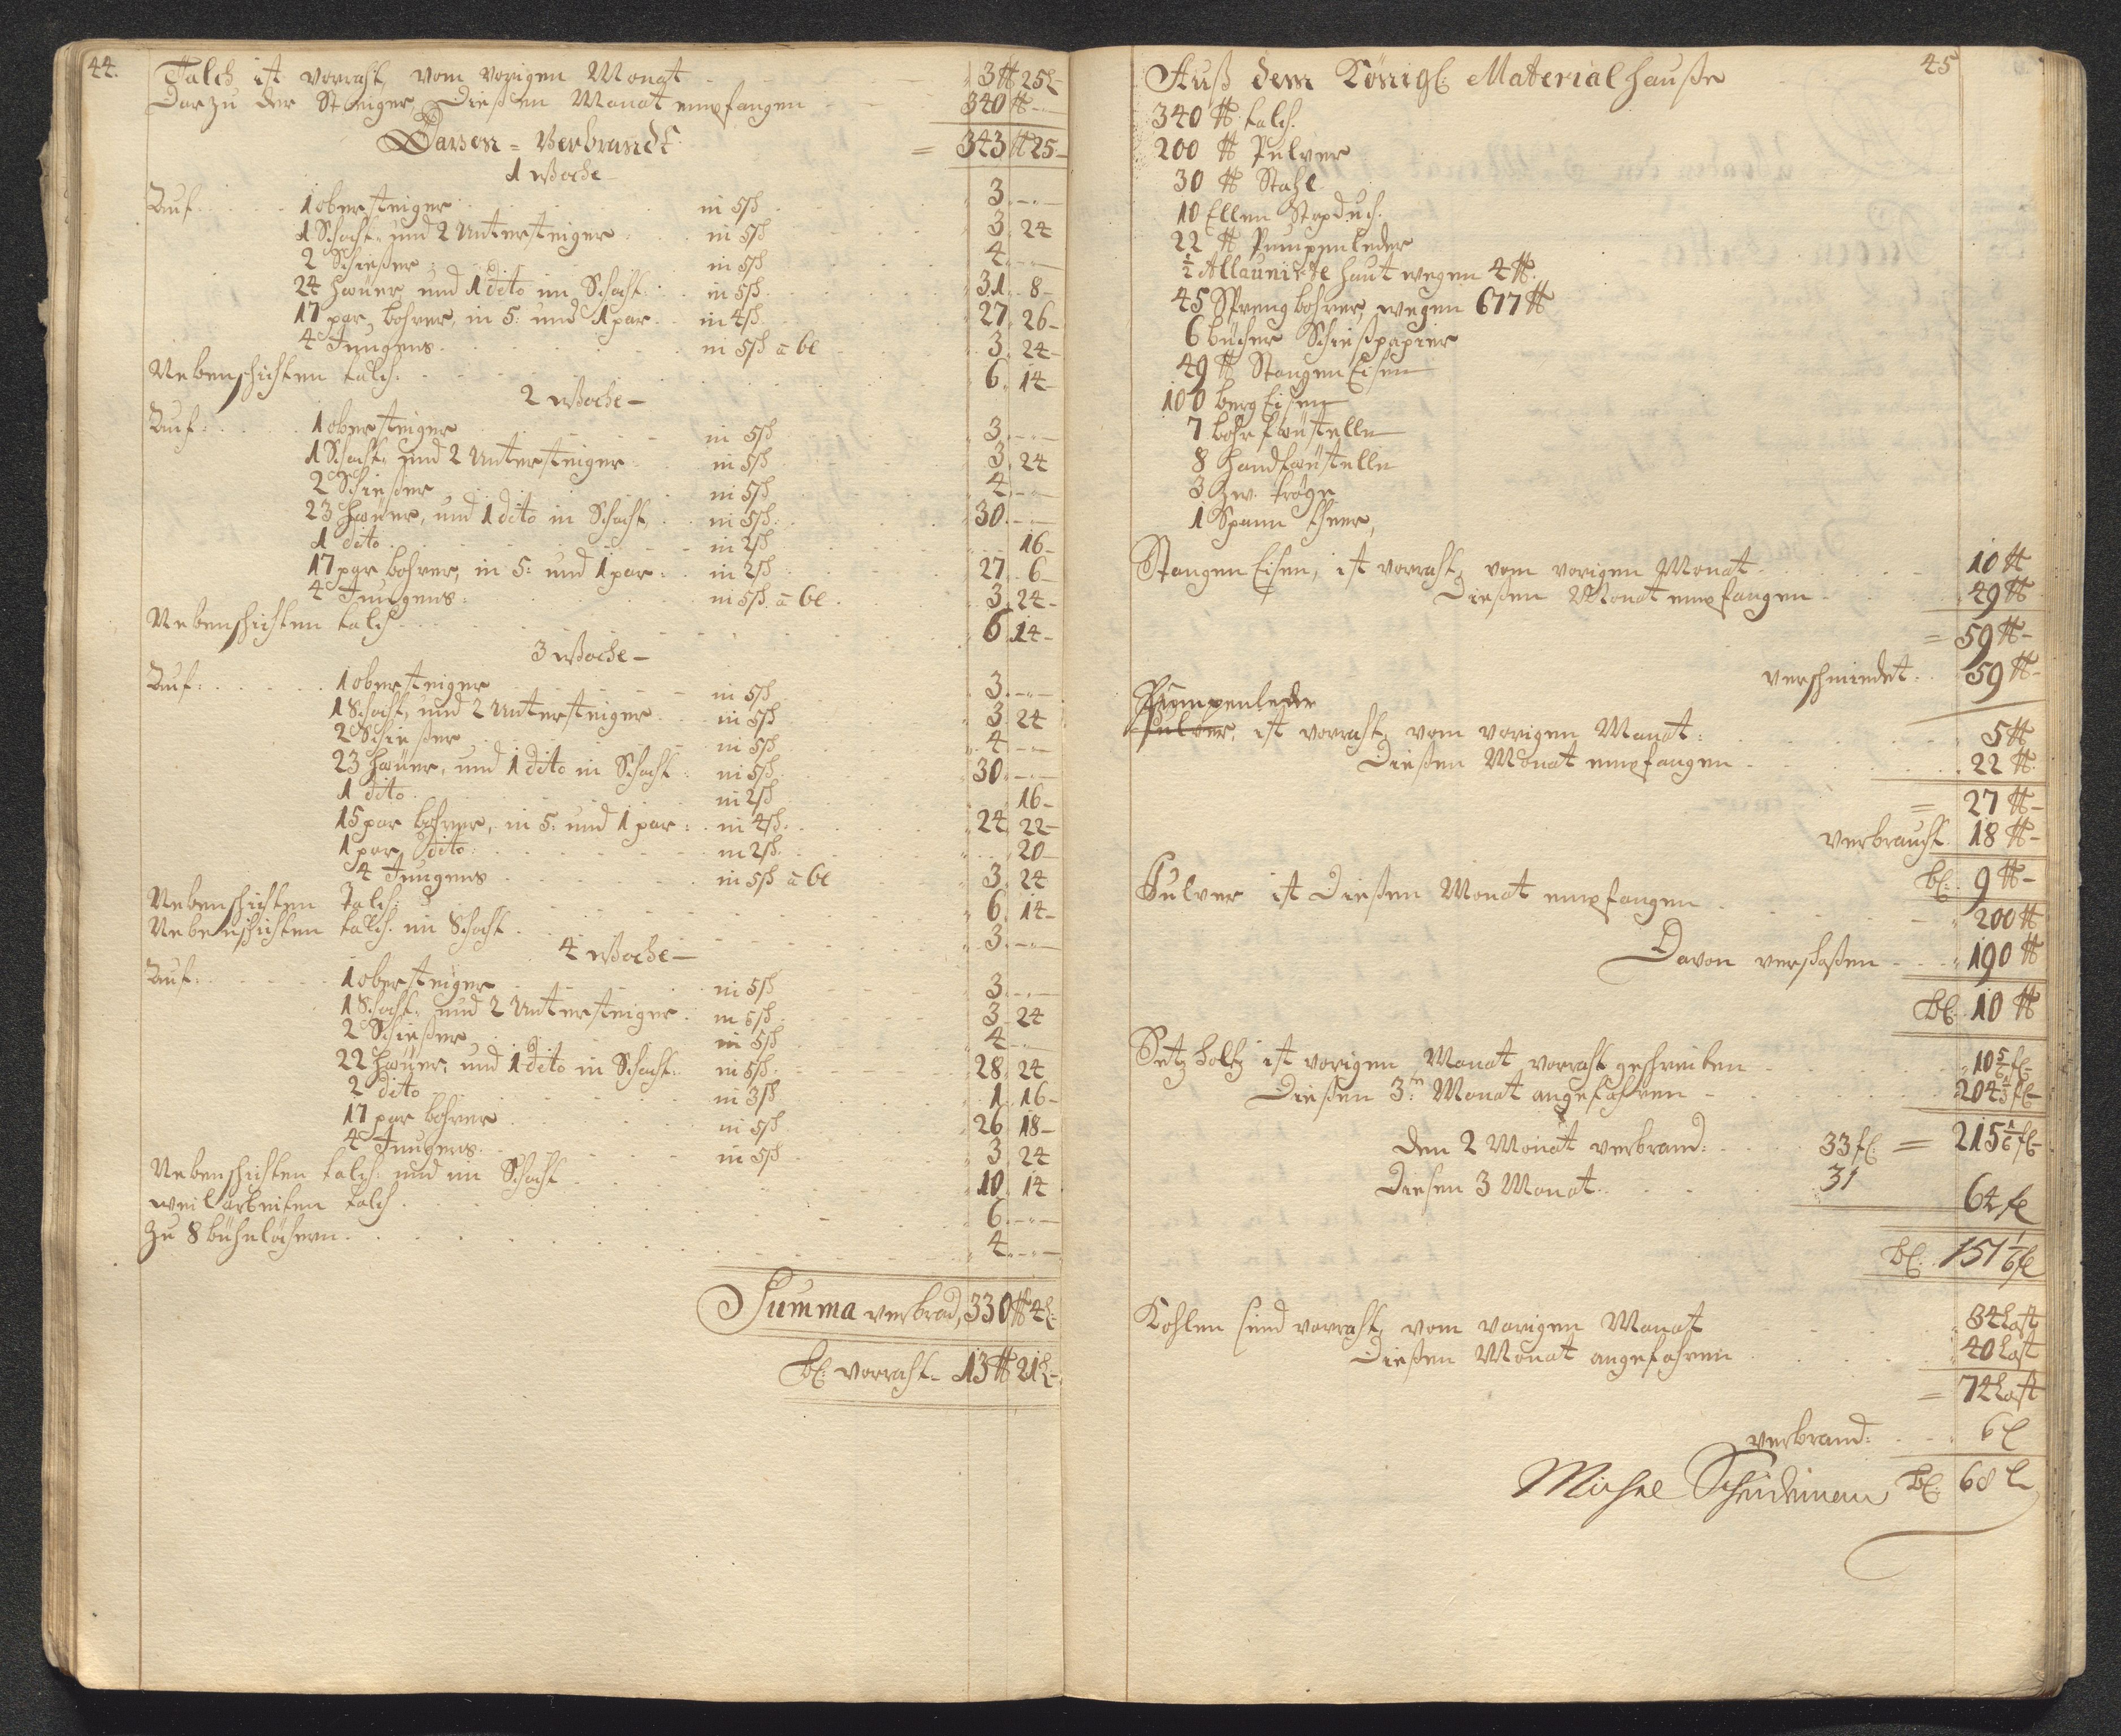 44.
Talch ist vorraht, vom vorigen Monat 3 ℔ 25 l
Darzu der Steiger, Dießen Monat empfangen 340 ℔
Darvon = Verbrandt = 343 ℔ 25
1 Woche
Auf 1 obersteiger in 5 sch 3
1 Schacht, und 2 Untersteiger in 5 sch 3 24
2 Schießer in 5 sch 4
24 Hauer, und 1 dito im Schacht in 5 sch 31 8
17 par bohrer, in 5: und 1 par in 4 sch 27 26
4 Jungens in 5 sch a 6 l 3 24
Nebenschichten talch 6 14
2 Woche
Auf: 1 obersteiger in 5 sch 3
1 Schacht, und 2 Untersteiger in 5 sch 3 24
2 Schießer in 5 sch 4
23 Hauer, und 1 dito in Schacht in 5 sch 30
1 dito in 2 sch 16
17 par bohrer, in 5: und 1 par in 2 sch 27 6
4 Jungens in 5 sch a 6 l 3 24
Nebenschichten talch 6 14
3 Woche
Auf: 1 obersteiger in 5 sch 3
1 Schacht, und 2 Untersteiger in 5 sch 3 24
2 Schießer in 5 sch 4
23 Hauer, und 1 dito in Schacht in 5 sch 30
1 dito in 2 sch 16
15 par bohrer, in 5: und 1 par in 4 sch 24 22
1 par dito in 2 sch 20
4 Jungens in 5 sch a 6 l 3 24
Nebenschichten Talch: 6 14
Nebenschichten talch. im Schacht 3
4 Woche
Auf: 1 obersteiger in 5 sch 3
1 Schacht, und 2 Untersteiger in 5 sch 3 24
2 Schießer in 5 sch 4
22 Hauer, und 1 dito in Schacht in 5 sch 28 24
2 dito in 3 sch 1 16
17 par bohrer in 5 sch 26 18
4 Jungens in 5 sch 3 24
Nebenschichten talch: und im Schacht 10 14
weil arbeiten talch 6
Zu 8 bühnlöchern 4
Summa verbrad, 330 ℔ 4 l
bl: vorraht 13 ℔ 21 l
45
Auß dem Königl: Material hauße
340 ℔ talch.
200 ℔ Pulver
30 ℔ Stahl
10 Ellen
22 ℔ Pumpenleder
½ Allaunirte haut wegen 4 ℔
45 Sprengbohrer, wegen 677 ℔
6 bücher Schießpapier
49 ℔ Stangen Eisen
100 berg Eisen
7 bohr feustelle
8 Handfeustelle
3 tröge
1 Spann theer,
Stangen Eisen, ist vorraht, vom vorigen Monat 10 ℔
Dießen Monat empfangen 49 ℔
= 59 ℔
verschmiedet 59 ℔
Pumpenleder
Pulver, ist vorraht, vom vorigen Monat: 5 ℔
Dießen Monat empfangen 22 ℔
= 27 ℔
verbraucht 18 ℔
bl: 9 ℔
Pulver ist Dießen Monat empfangen 200 ℔
Davon verschoßen 190 ℔
bl: 10 ℔
Setz holtz ist vorigen Monat vorraht geschrieben 10 5/6 fl
Dießen 3ten Monat angefahren 204 1/3 fl
den 2 Monat verbrand: 33 fl: = 215 1/6 fl
Diesen 3 Monat 31 64 fl
bl: 151 1/6 fl
Kohlen sind vorraht, vom vorigen Monat 34 Last
Dießen Monat angefahren 40 Last
= 74 Last
verbrand: 6 l
Michel Scheideman bl: 68 l